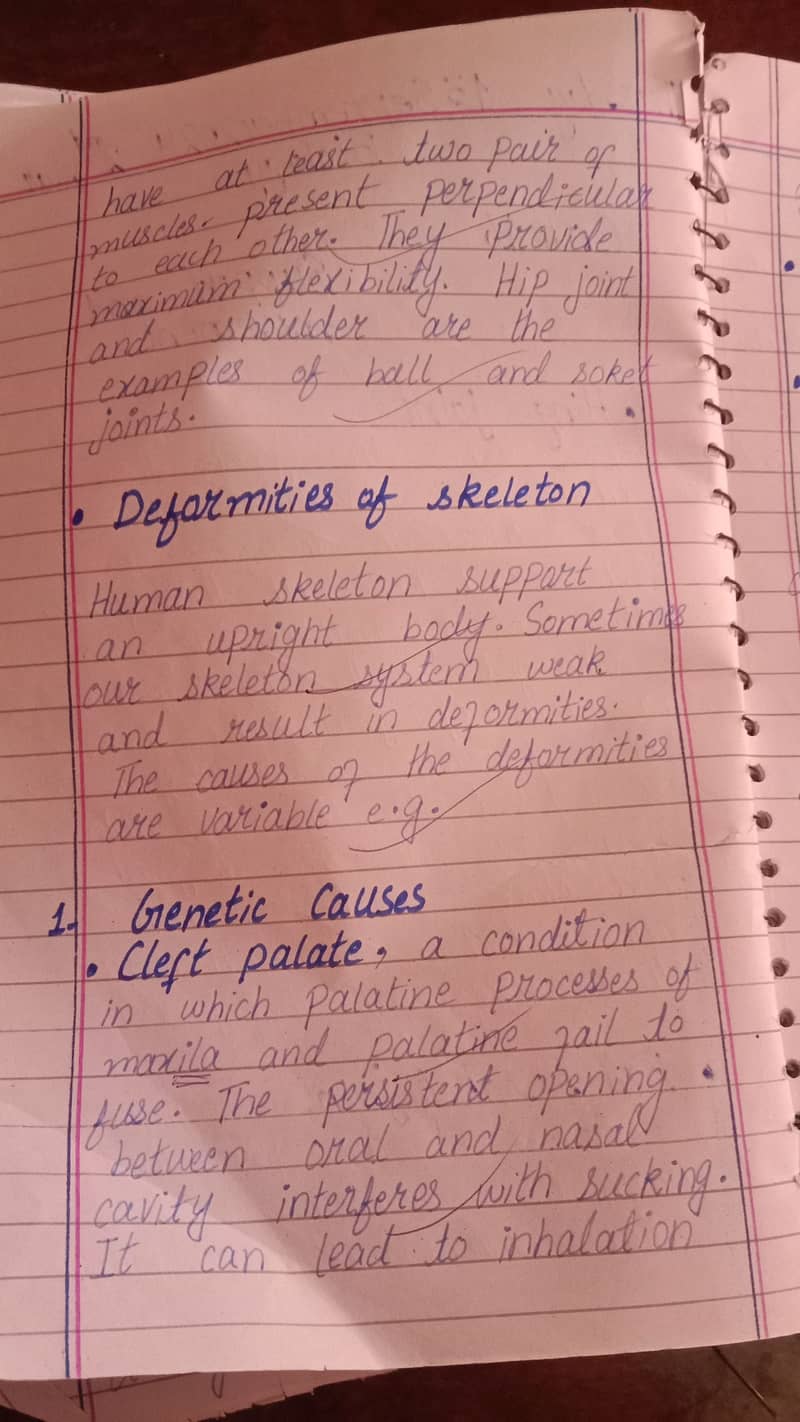 have at least two pair of
muscles. present perpendicular
to each other. They provide
maximum flexibility. Hip joint
and shoulder are the
examples of ball and soket
joints.
• Deformities of skeleton
Human skeleton support
an upright body. Sometimes
our skeleton system weak
and result in deformities.
The causes of the deformities
are variable e.g.
1. Genetic Causes
• Cleft palate, a condition
in which Palatine processes of
maxila and palatine fail to
fuse. The persistent opening
between oral and nasal
cavity interferes with sucking.
It can lead to inhalation